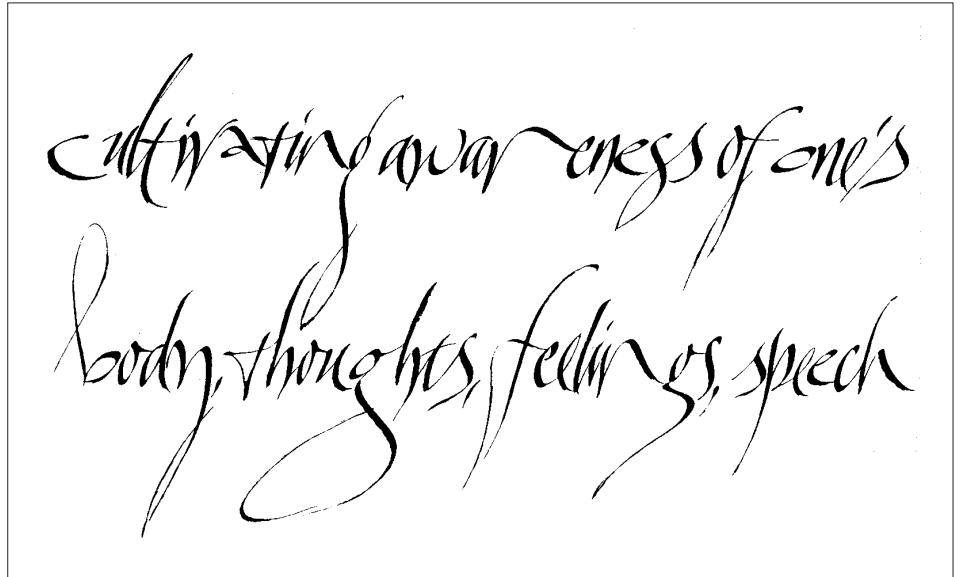 cultivating awareness of one's
body, thoughts, feelings, speech